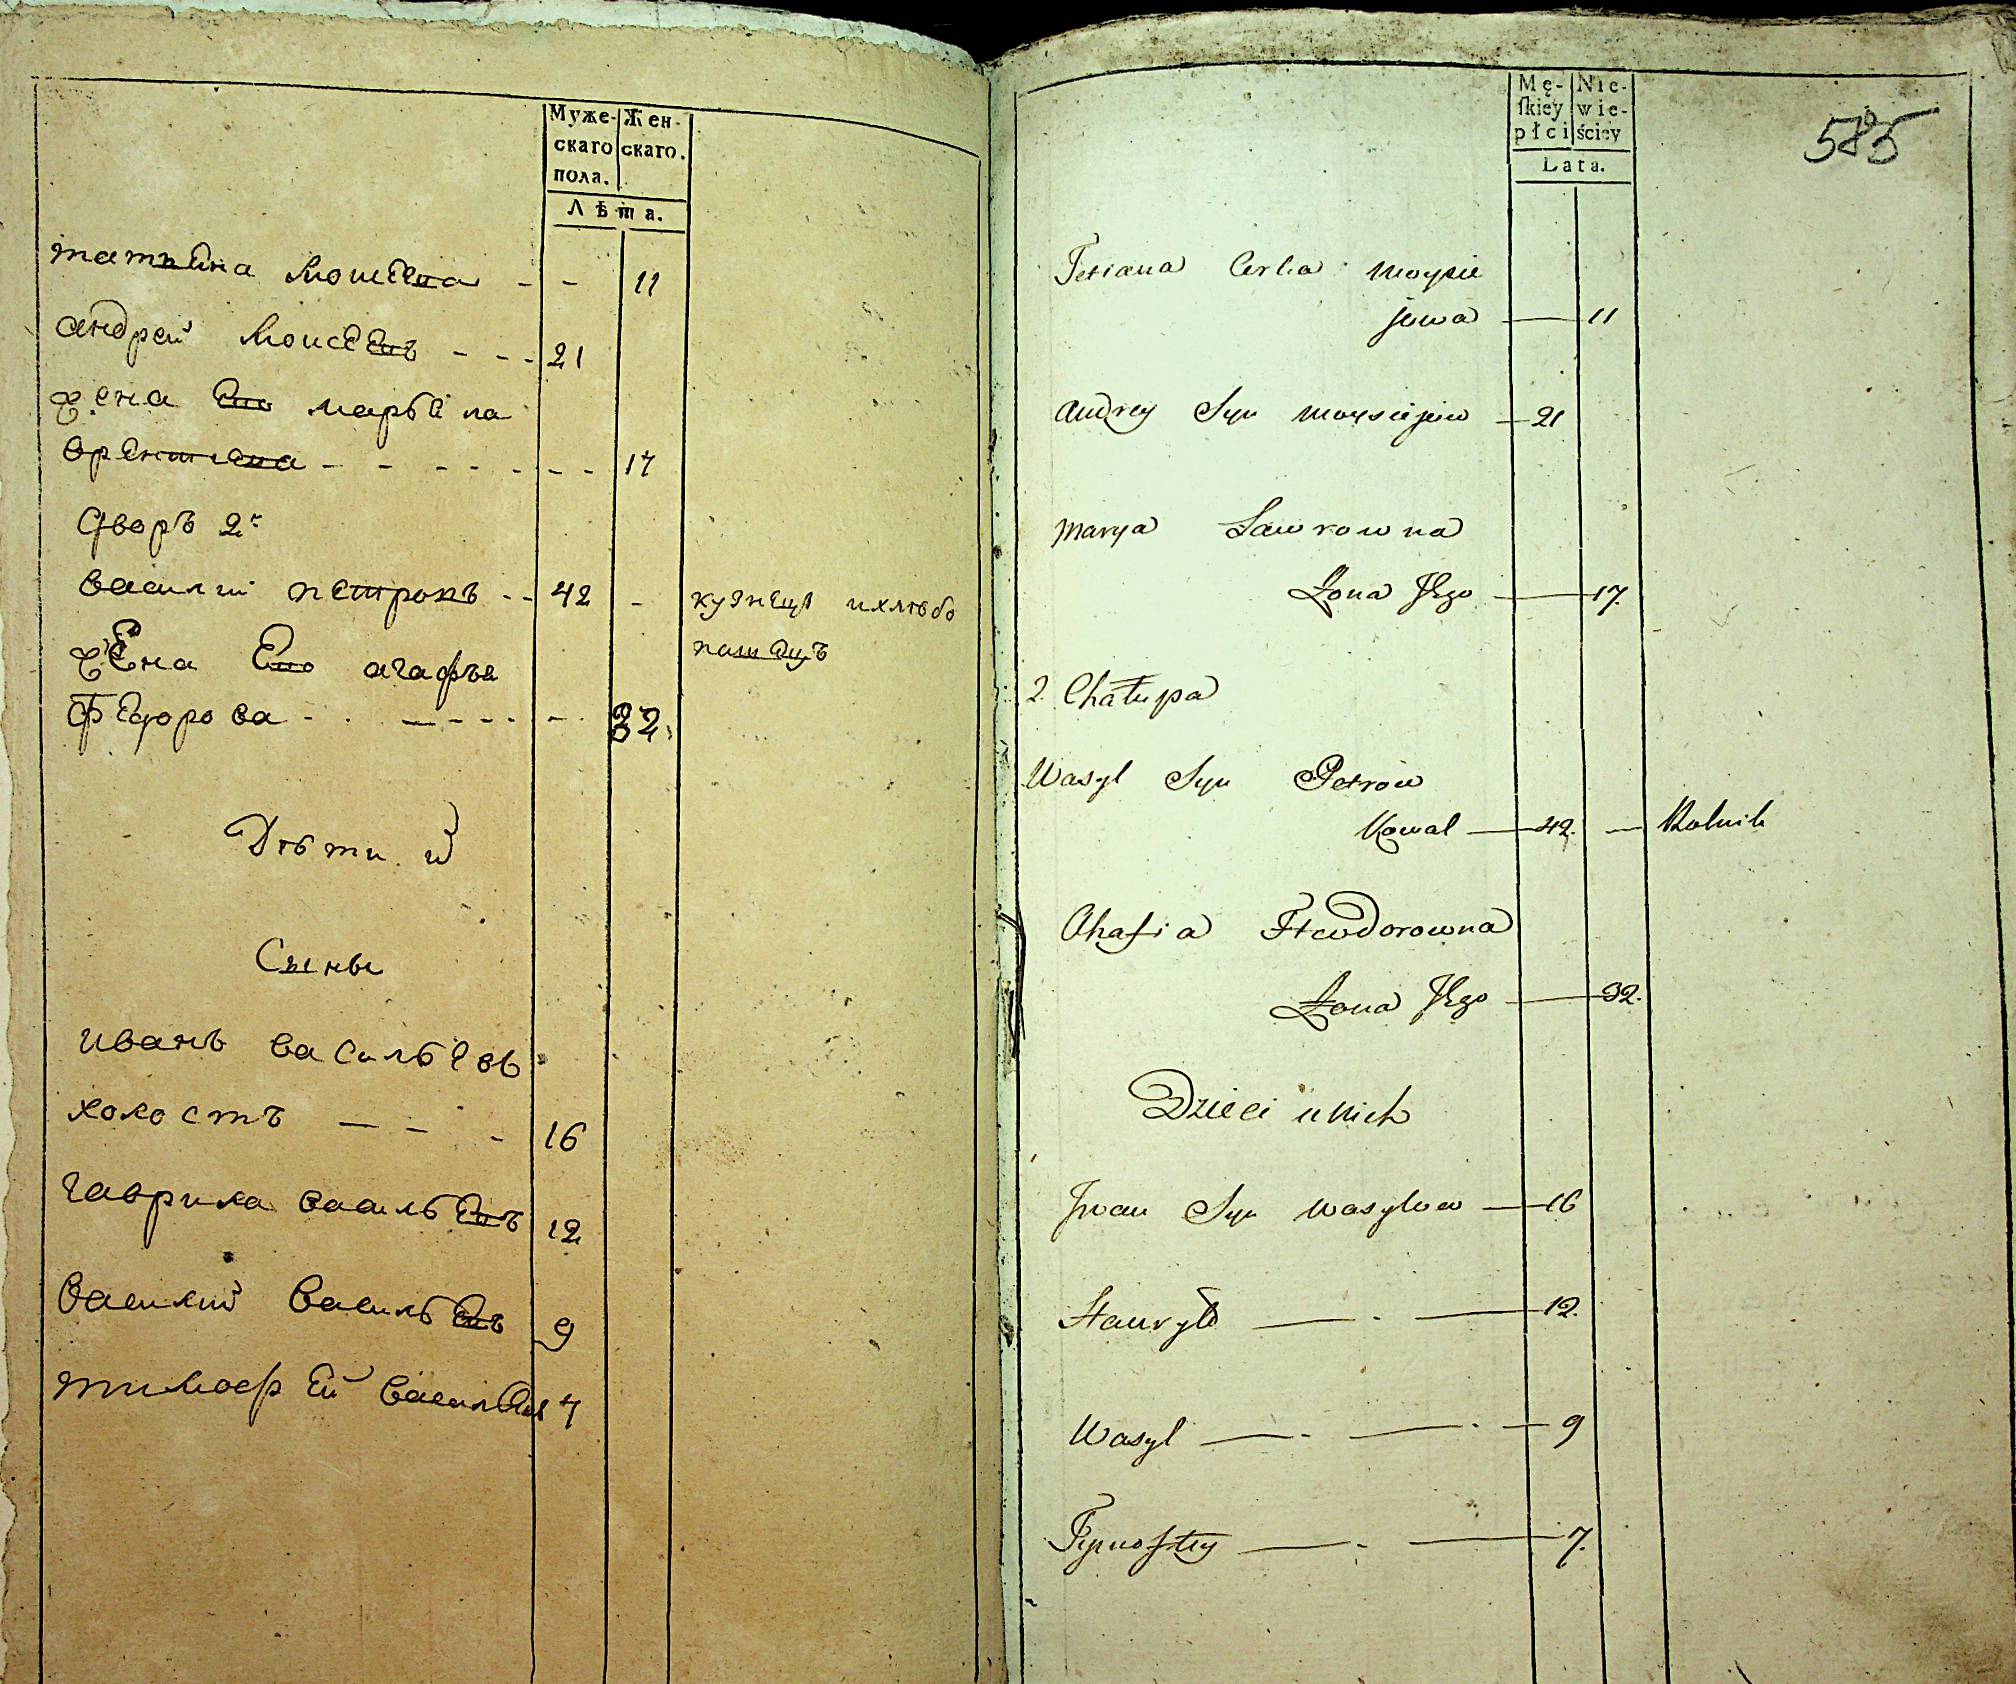 Муже- Жен-
скаго скаго.
пола.
Лѣта.
татиѣна Моисѣева - - 11
андреи Моисѣевъ - - - 21
жена Его марѣина
- - - - - - - 17
дворъ 2й
василии петровъ - - 42 - кузнецъ и хлѣбо
пашецъ
жена Его агафья
Федорова - - - - - - - 32.
Дѣти их
Сыны
иванъ васильевъ
холостъ - - - 16
гаврила васильевъ 12
василии васильевъ 9
тимофей васильевъ 7
Mę- Nie-
ſkiey wie-
płci ściey
Lata.
585
Tetiana Corka Moysie
jowa — 11
Andrey Syn Moysiejow — 21
Marya Lawrowna
Żona Jego — 17.
2. Chałupa
Wasyl Syn Petrow
Kowal — 42. — Rolnik
Ahafia Fteodorowna
Żona Jego — 32.
Dzieci u Nich
Jwan Syn Wasylow — 16
Hawryło — - — 12.
Wasyl — - — - — 9
Tymoftey — - — 7.